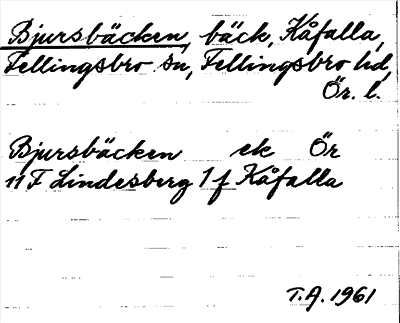 Bjursbäcken, bäck, Kåfalla,
Fellingsbro sn, Fellingsbro hd,
Ör. l.
Bjursbäcken ek Ör
11F Lindesberg 1f Kåfalla
T.A. 1961